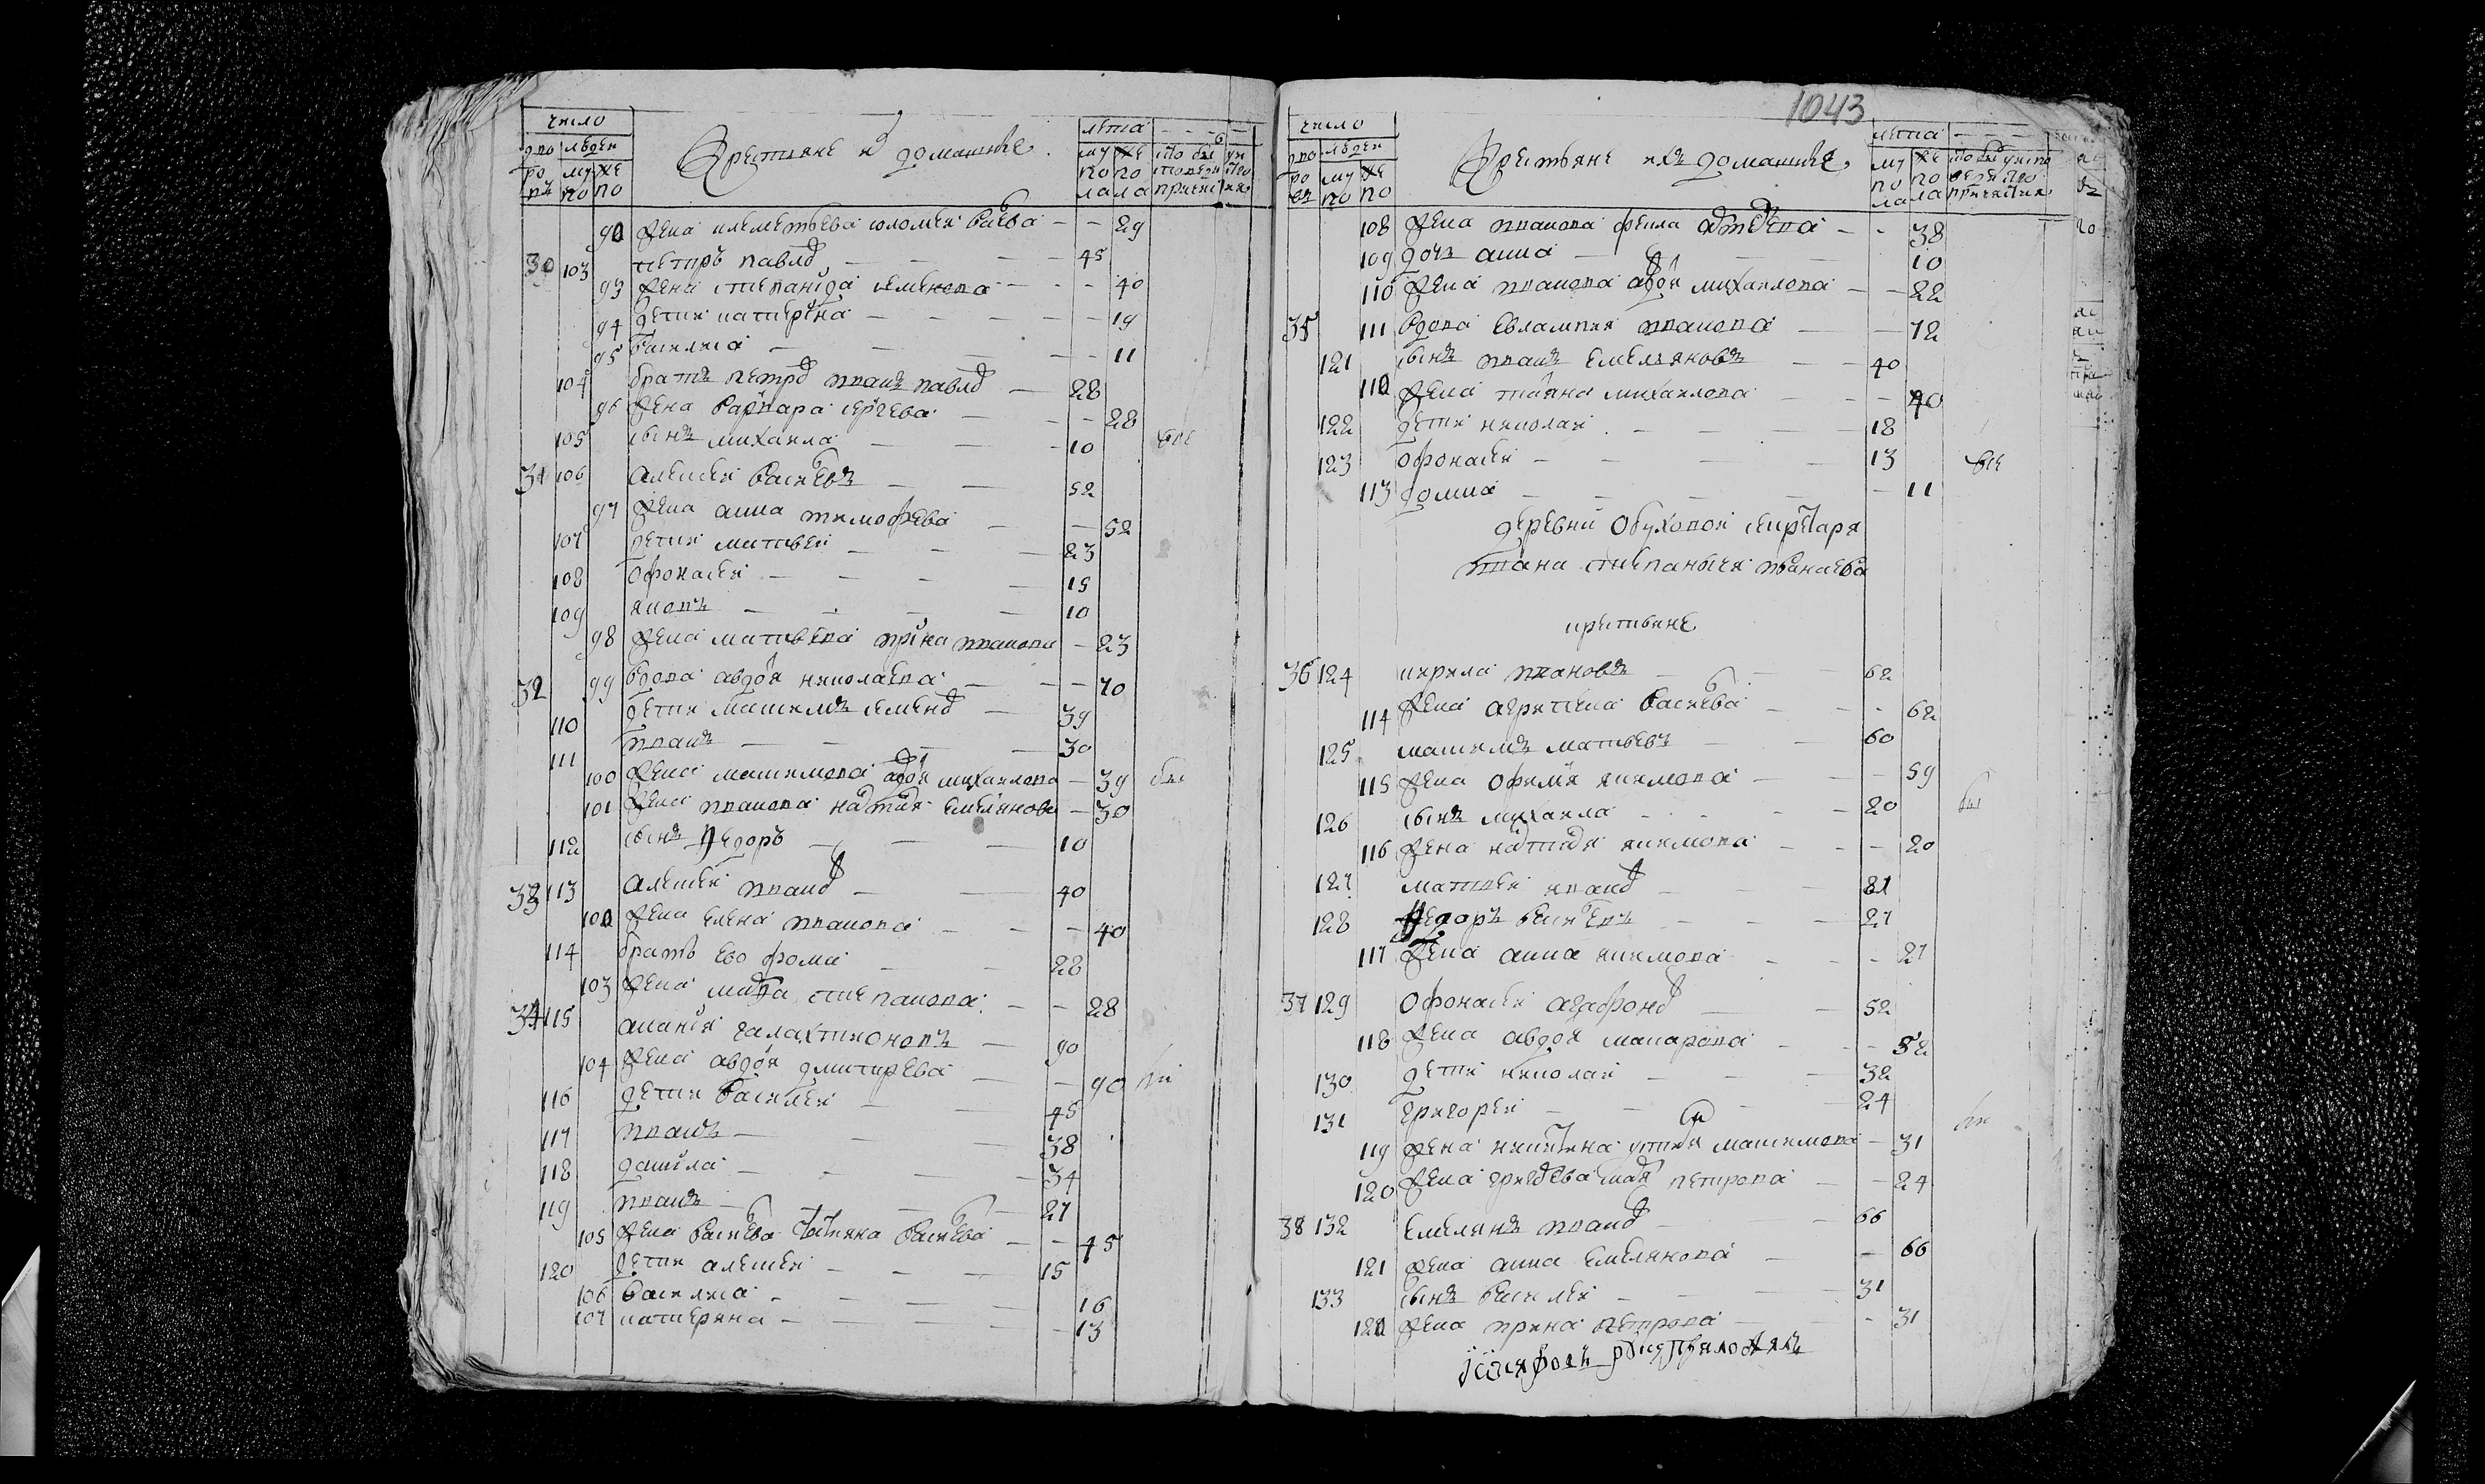 число
дво людей
ро му же
въ по по
Крестьяне и домашние
лета
му же
по по
ла ла
92 жена клементьева соломея васева 29
30 103 петръ павло 45
93 жена степанида семенова 40
94 дети катерина 19
95 василиса 11
104 братъ петро иванъ павло 28
96 жена варвара сергева 28
105 сынъ михаила 10 все
31 106 алексей васиевъ 52
97 жена анна тимофева 52
107 дети матвей 23
108 офонасей 15
109 яковъ 10
98 жена матвева ирина иванова 23
32 99 вдова авдоя николаева 70
110 дети максимъ семено 39
111 иванъ 30
100 жена максимова авдоя михаилова 39
101 жена иванова настася емельянова 30
112 сынъ федоръ 10
33 113 алексей ивано 40
102 жена елена иванова 40
114 братъ ево фома 28
103 жена марфа степанова 28
34 115 ананья галахтионовъ 90
104 жена авдоя дмитрева 90
116 дети василей 45
117 иванъ 38
118 данила 34
119 иванъ 27
105 жена васиева татияна васиева 45
120 дети алексей 15
106 василиса 16
107 катерина 13
1043
число
дво людей
ро му же
въ по по
Крестьяне ихъ домашние
лета
му же
по по
ла ла
108 жена иванова фекла 38
109 дочь анна 10
110 жена иванова авдоя михаилова 22
35 111 вдова евлампия иванова 72
121 сынъ иванъ емельяновъ 40
112 жена татяна михаилова 40
122 дети николай 18
123 офонасей 13 все
113 домна 11
деревни Обуховой секретаря
ивана степаныча
крестьяне
36 124 кирила ивановъ 62
114 жена агрипена васиева 62
125 максимъ матвевъ 60
115 жена офимя якимова 59
126 сынъ михаила 20
116 жена настася якимова 20
127 матвей ивано 21
128 федоръ васиевъ 27
117 жена анна якимова 27
37 129 офонасей агафоно 52
118 жена авдоя макарова 52
130 дети николай 32
131 григорей 24
119 жена устиня максимова 31
120 жена григорева петрова 24
38 132 емелянъ ивано 66
121 жена анна емелянова 66
133 сынъ василей 31
122 жена ирина петрова 31